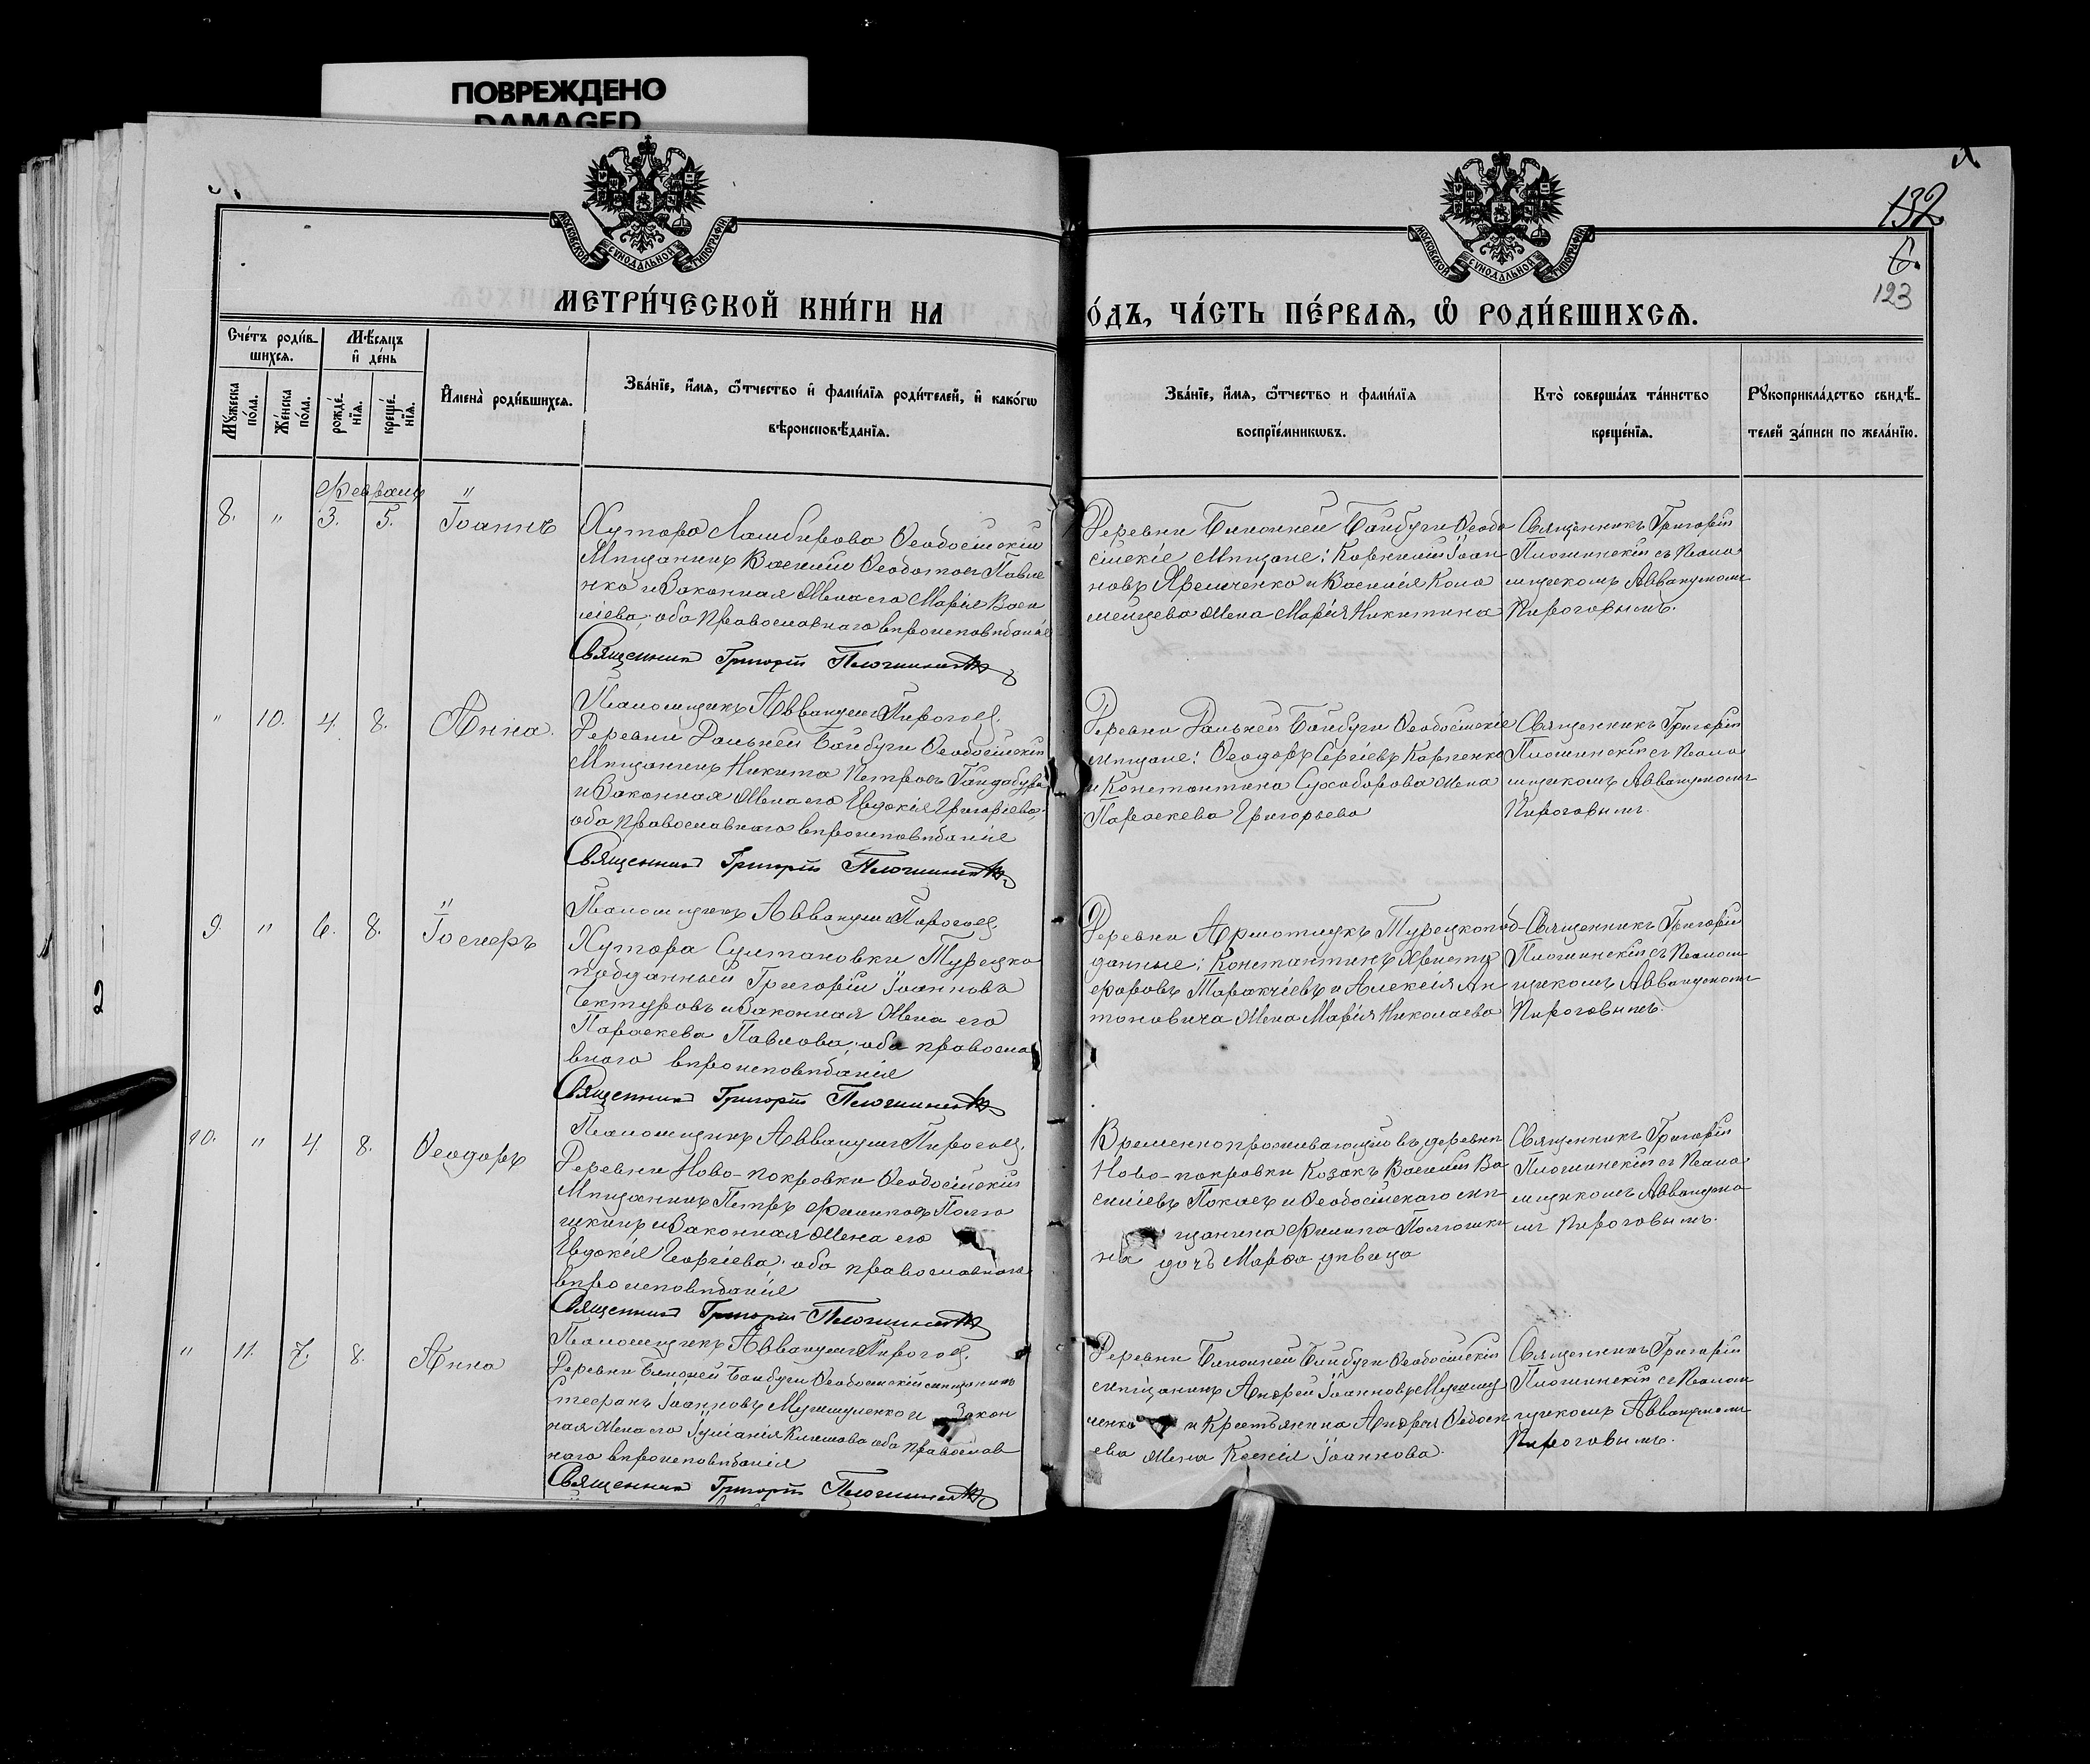 ПОВРЕЖДЕНО
DAMAGED
МОСКОВСКОЙ СУНОДАЛЬНОЙ ТИПОГРАФІИ
МОСКОВСКОЙ СУНОДАЛЬНОЙ ТИПОГРАФІИ
132
6.
123
МЕТРИ́ЧЕСКОЙ КНИ́ГИ НА
О́ДЪ, ЧА́СТЬ ПЕ́РВАЯ, Ѽ РОДИ́ВШИХСЯ.
Сче́тъ роди́в-
шихся.
Мѣ́сяцъ
и҆ де́нь
Мꙋ́жеска по́ла.
Же́нска по́ла.
рожде́-
нїя.
креще́-
нїя.
И҆мена̀ роди́вшихся.
Зва́нїе, и҆́мя, ѻ҆́тчество и҆ фами́лїя роди́телей, и҆ како́гѡ
вѣроисповѣ́данїя.
Зва́нїе, и҆́мя, ѻ҆́тчество и фами́лїя
воспрїе́мникѡвъ.
Кто̀ соверша́лъ та́инство
креще́нїя.
Рꙋкоприкла́дство свидѣ́-
телей за́писи по жела́нїю.
Февраль
8. " 3. 5. Іоаннъ
Хутора Ѳеодосійскій
Мѣщанинъ Василій Ѳеодотовъ Павле
нко и Законная Жена его Марія Васи
ліева, оба Православнаго вѣроисповѣданія
Священникъ Григорій
Деревни Ближней Байбуги Ѳеодо
сійскіе Мѣщане: Корнилій Іоан
новъ Яременко и Василія Коло
мейцева Жена Марія Никитина
Священникъ Григорій
съ Псало
мщикомъ Аввакумомъ
Пироговымъ.
" 10. 4. 8. Анна.
Псаломщикъ Аввакумъ Пироговъ.
Деревни Дальней Байбуги Ѳеодосійскій
Мѣщанинъ Никита Петровъ
и Законная Жена его Евдокія Григоріева,
оба Православнаго вѣроисповѣданія
Священникъ Григорій
Деревни Дальней Байбуги Ѳеодосійскіе
мѣщане: Ѳеодоръ Сергіевъ Карпенко
и Константина Сухоборова Жена
Параскева Григорьева
Священникъ Григорій
съ Псало
мщикомъ Аввакумомъ
Пироговымъ.
9. " 6. 8. Іосифъ
Псаломщикъ Аввакумъ Пироговъ.
Хутора Султановки Турецко
подданный Григорій Іоанновъ
Чектуровъ и Законная Жена его
Параскева Павлова, оба правосла
внаго вѣроисповѣданія
Священникъ Григорій
Деревни Турецкопод-
данные: Константинъ Христо
форовъ Таракчіевъ и Алексія Ан
тоновича Жена Марія Николаева
Священникъ Григорій
съ Псалом
щикомъ Аввакумомъ
Пироговымъ.
10. " 4. 8. Ѳеодоръ
Псаломщикъ Аввакумъ Пироговъ.
Деревни Ново-покровки Ѳеодосійскій
Мѣщанинъ Петръ Филиповъ
и Законная Жена его
Евдокія Георгіева, оба православнаго
вѣроисповѣданія
Священникъ Григорій
Временнопроживающій въ деревни
Ново-покровки Козакъ Василій Ва
силіевъ и Ѳеодосійскаго мѣ-
щанина Филипа
на дочь Марѳа девица
Священникъ Григорій
съ Псало
мщикомъ Аввакумо
мъ Пироговымъ.
" 11. 7. 8. Анна
Псаломщикъ Аввакумъ Пироговъ.
Деревни Ближней Байбуги Ѳеодосійскій мѣщанинъ
Стефанъ Іоанновъ и Закон
ная Жена его Іуліанія Климова оба православ
наго вѣроисповѣданія
Священникъ Григорій
Деревни Ближней Байбуги Ѳеодосійскій
мѣщанинъ Андрей Іоанновъ
ченко и Крестьянина Андрея
ева Жена Ксенія Іоаннова.
Священникъ Григорій
съ Псалом
щикомъ Аввакумомъ
Пироговымъ.